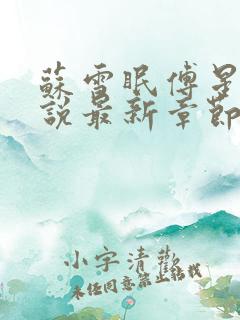 蘇雪眠傅星
說最新章節
小字清歡
未经同意禁止转载